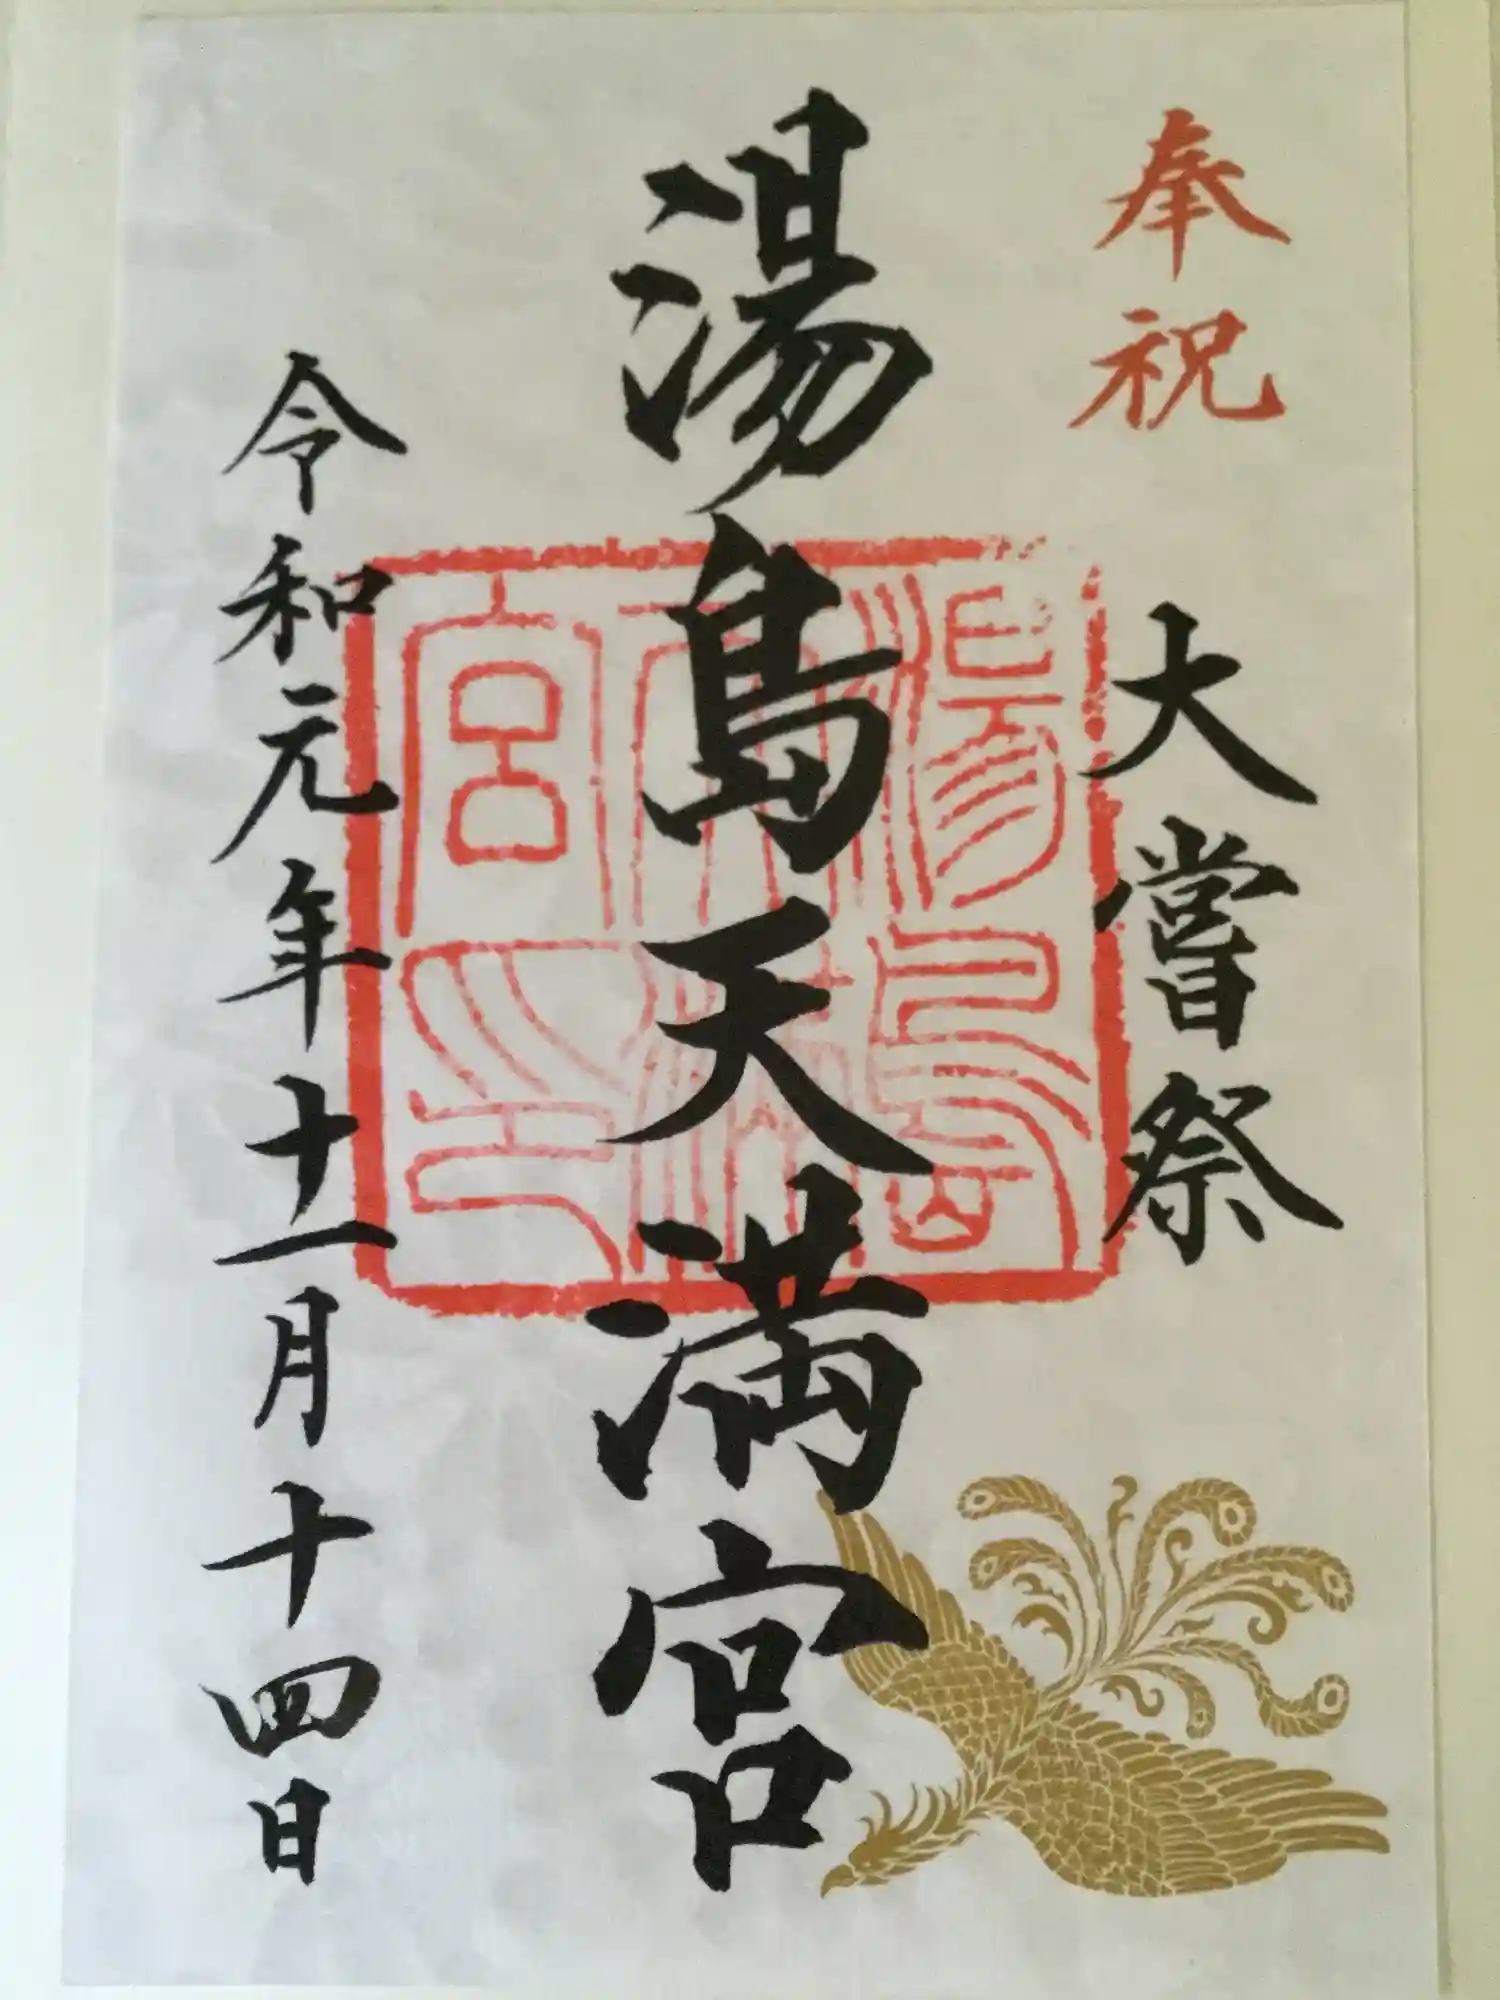 奉祝
大嘗祭
湯島天満宮
令和元年十一月十四日
湯島天満宮印